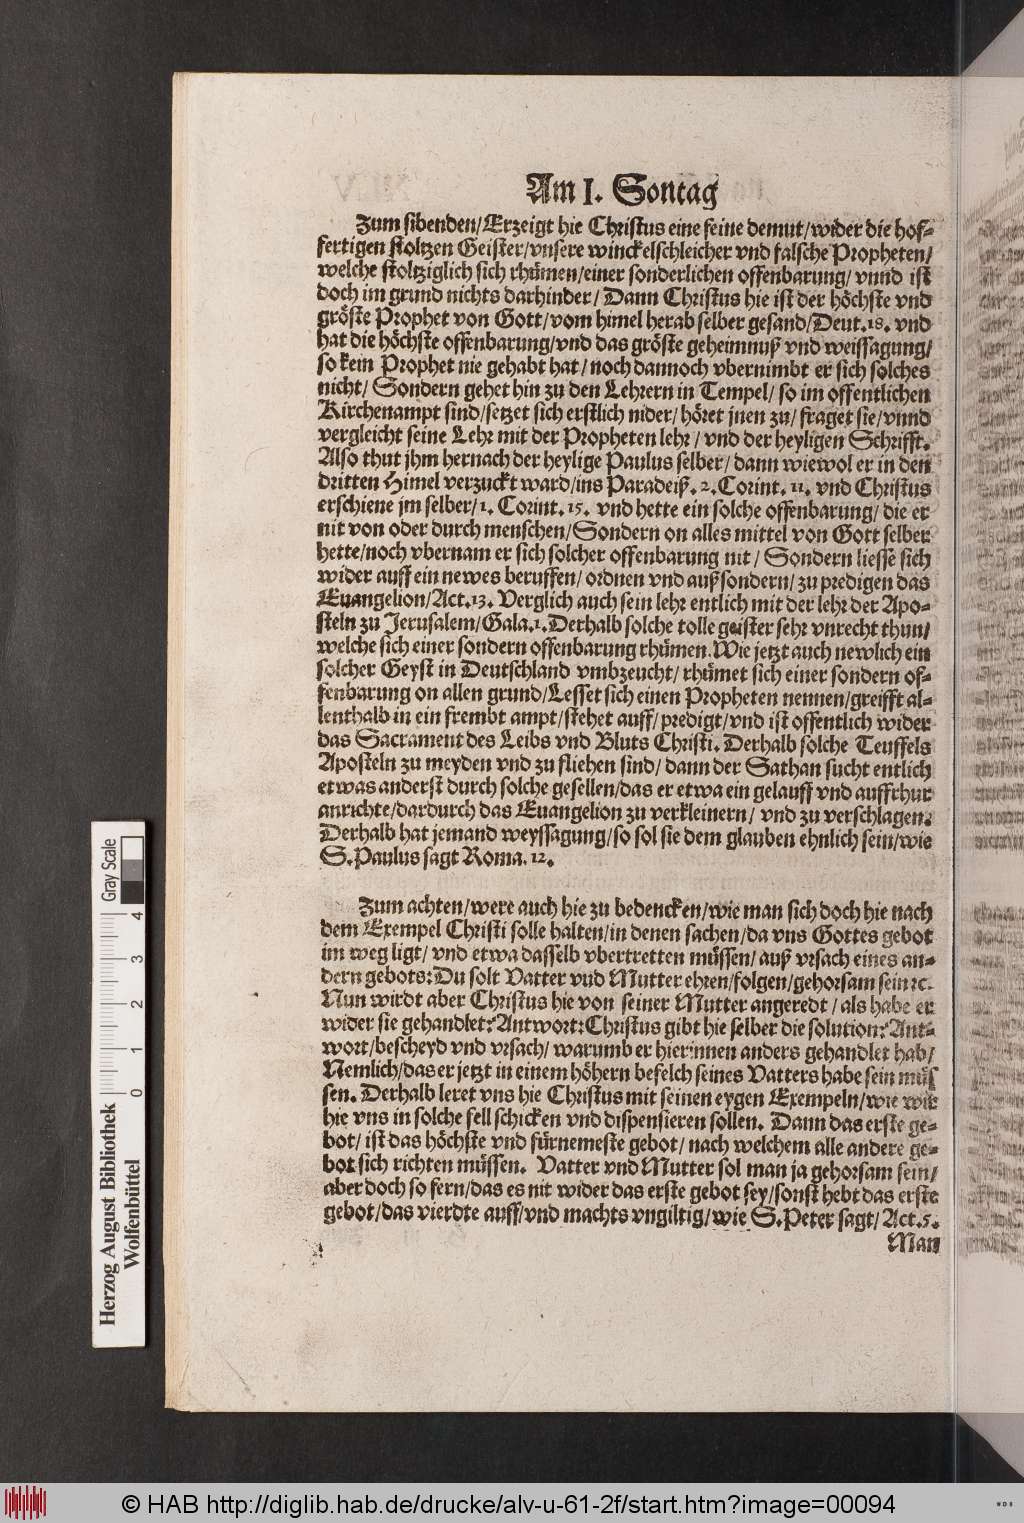 Am I. Sontag
Zum sibenden/Erzeigt hie Christus eine feine demut/wider die hof-
fertigen stoltzen Geister/vnsere winckelschleicher vnd falsche Propheten/
welche stoltziglich sich rhümen/einer sonderlichen offenbarung/ vnnd ist
doch im grund nichts darhinder/ Dann Christus hie ist der höchste vnd
gröste Prophet von Gott/vom himel herab selber gesand/Deut.18. vnd
hat die höchste offenbarung/vnd das gröste geheimnuß vnd weissagung/
so kein Prophet nie gehabt hat/ noch dannoch vbernimbt er sich solches
nicht/ Sondern gehet hin zu den Lehrern in Tempel/ so im offentlichen
Kirchenampt sind/setzet sich erstlich nider/ höret jnen zu/ fraget sie/vnnd
vergleicht seine Lehr mit der Propheten lehr/ vnd der heyligen Schrifft.
Also thut jhm hernach der heylige Paulus selber/ dann wiewol er in den
dritten Himel verzuckt ward/ins Paradeiß. 2. Corint. 11. vnd Christus
erschiene jm selber/1. Corint. 15. vnd hette ein solche offenbarung/ die er
nit von oder durch menschen/Sondern on alles mittel von Gott selber
hette/noch vbernam er sich solcher offenbarung nit/ Sondern liesse sich
wider auff ein newes beruffen/ ordnen vnd außsondern/ zu predigen das
Euangelion/Act.13. Verglich auch sein lehr entlich mit der lehr der Apo-
steln zu Jerusalem/Gala.1. Derhalb solche tolle geister sehr vnrecht thun/
welche sich einer sondern offenbarung rhümen. Wie jetzt auch newlich ein
solcher Geyst in Deutschland vmbzeucht/ rhümet sich einer sondern of-
fenbarung on allen grund/Lesset sich einen Propheten nennen/greifft al-
lenthalb in ein frembt ampt/stehet auff/ predigt/vnd ist offentlich wider
das Sacrament des Leibs vnd Bluts Christi. Derhalb solche Teuffels
Aposteln zu meyden vnd zu fliehen sind/ dann der Sathan sucht entlich
etwas anderst durch solche gesellen/das er etwa ein gelauff vnd auffrhur
anrichte/dardurch das Euangelion zu verkleinern/ vnd zu verschlagen.
Derhalb hat jemand weyssagung/so sol sie dem glauben ehnlich sein/wie
S. Paulus sagt Roma. 12.
Zum achten/were auch hie zu bedencken/wie man sich doch hie nach
dem Exempel Christi solle halten/in denen sachen/da vns Gottes gebot
im weg ligt/ vnd etwa dasselb vbertretten müssen/ auß vrsach eines an-
dern gebots: Du solt Vatter vnd Mutter ehren/folgen/gehorsam sein ꝛc.
Nun wirdt aber Christus hie von seiner Mutter angeredt/ als habe er
wider sie gehandlet? Antwort: Christus gibt hie selber die solution? Ant-
wort/bescheyd vnd vrsach/ warumb er hierinnen anders gehandlet hab/
Nemlich/das er jetzt in einem höhern befelch seines Vatters habe sein müs
sen. Derhalb leret vns hie Christus mit seinen eygen Exempeln/wie wir
hie vns in solche fell schicken vnd dispensieren sollen. Dann das erste ge-
bot/ ist das höchste vnd fürnemeste gebot/ nach welchem alle andere ge-
bot sich richten müssen. Vatter vnd Mutter sol man ja gehorsam sein/
aber doch so fern/das es nit wider das erste gebot sey/sonst hebt das erste
gebot/das vierdte auff/vnd machts vngiltig/wie S. Peter sagt/ Act.5.
Man
Gray Scale
4
3
2
1
0
Herzog August Bibliothek
Wolfenbüttel
© HAB http://diglib.hab.de/drucke/alv-u-61-2f/start.htm?image=00094